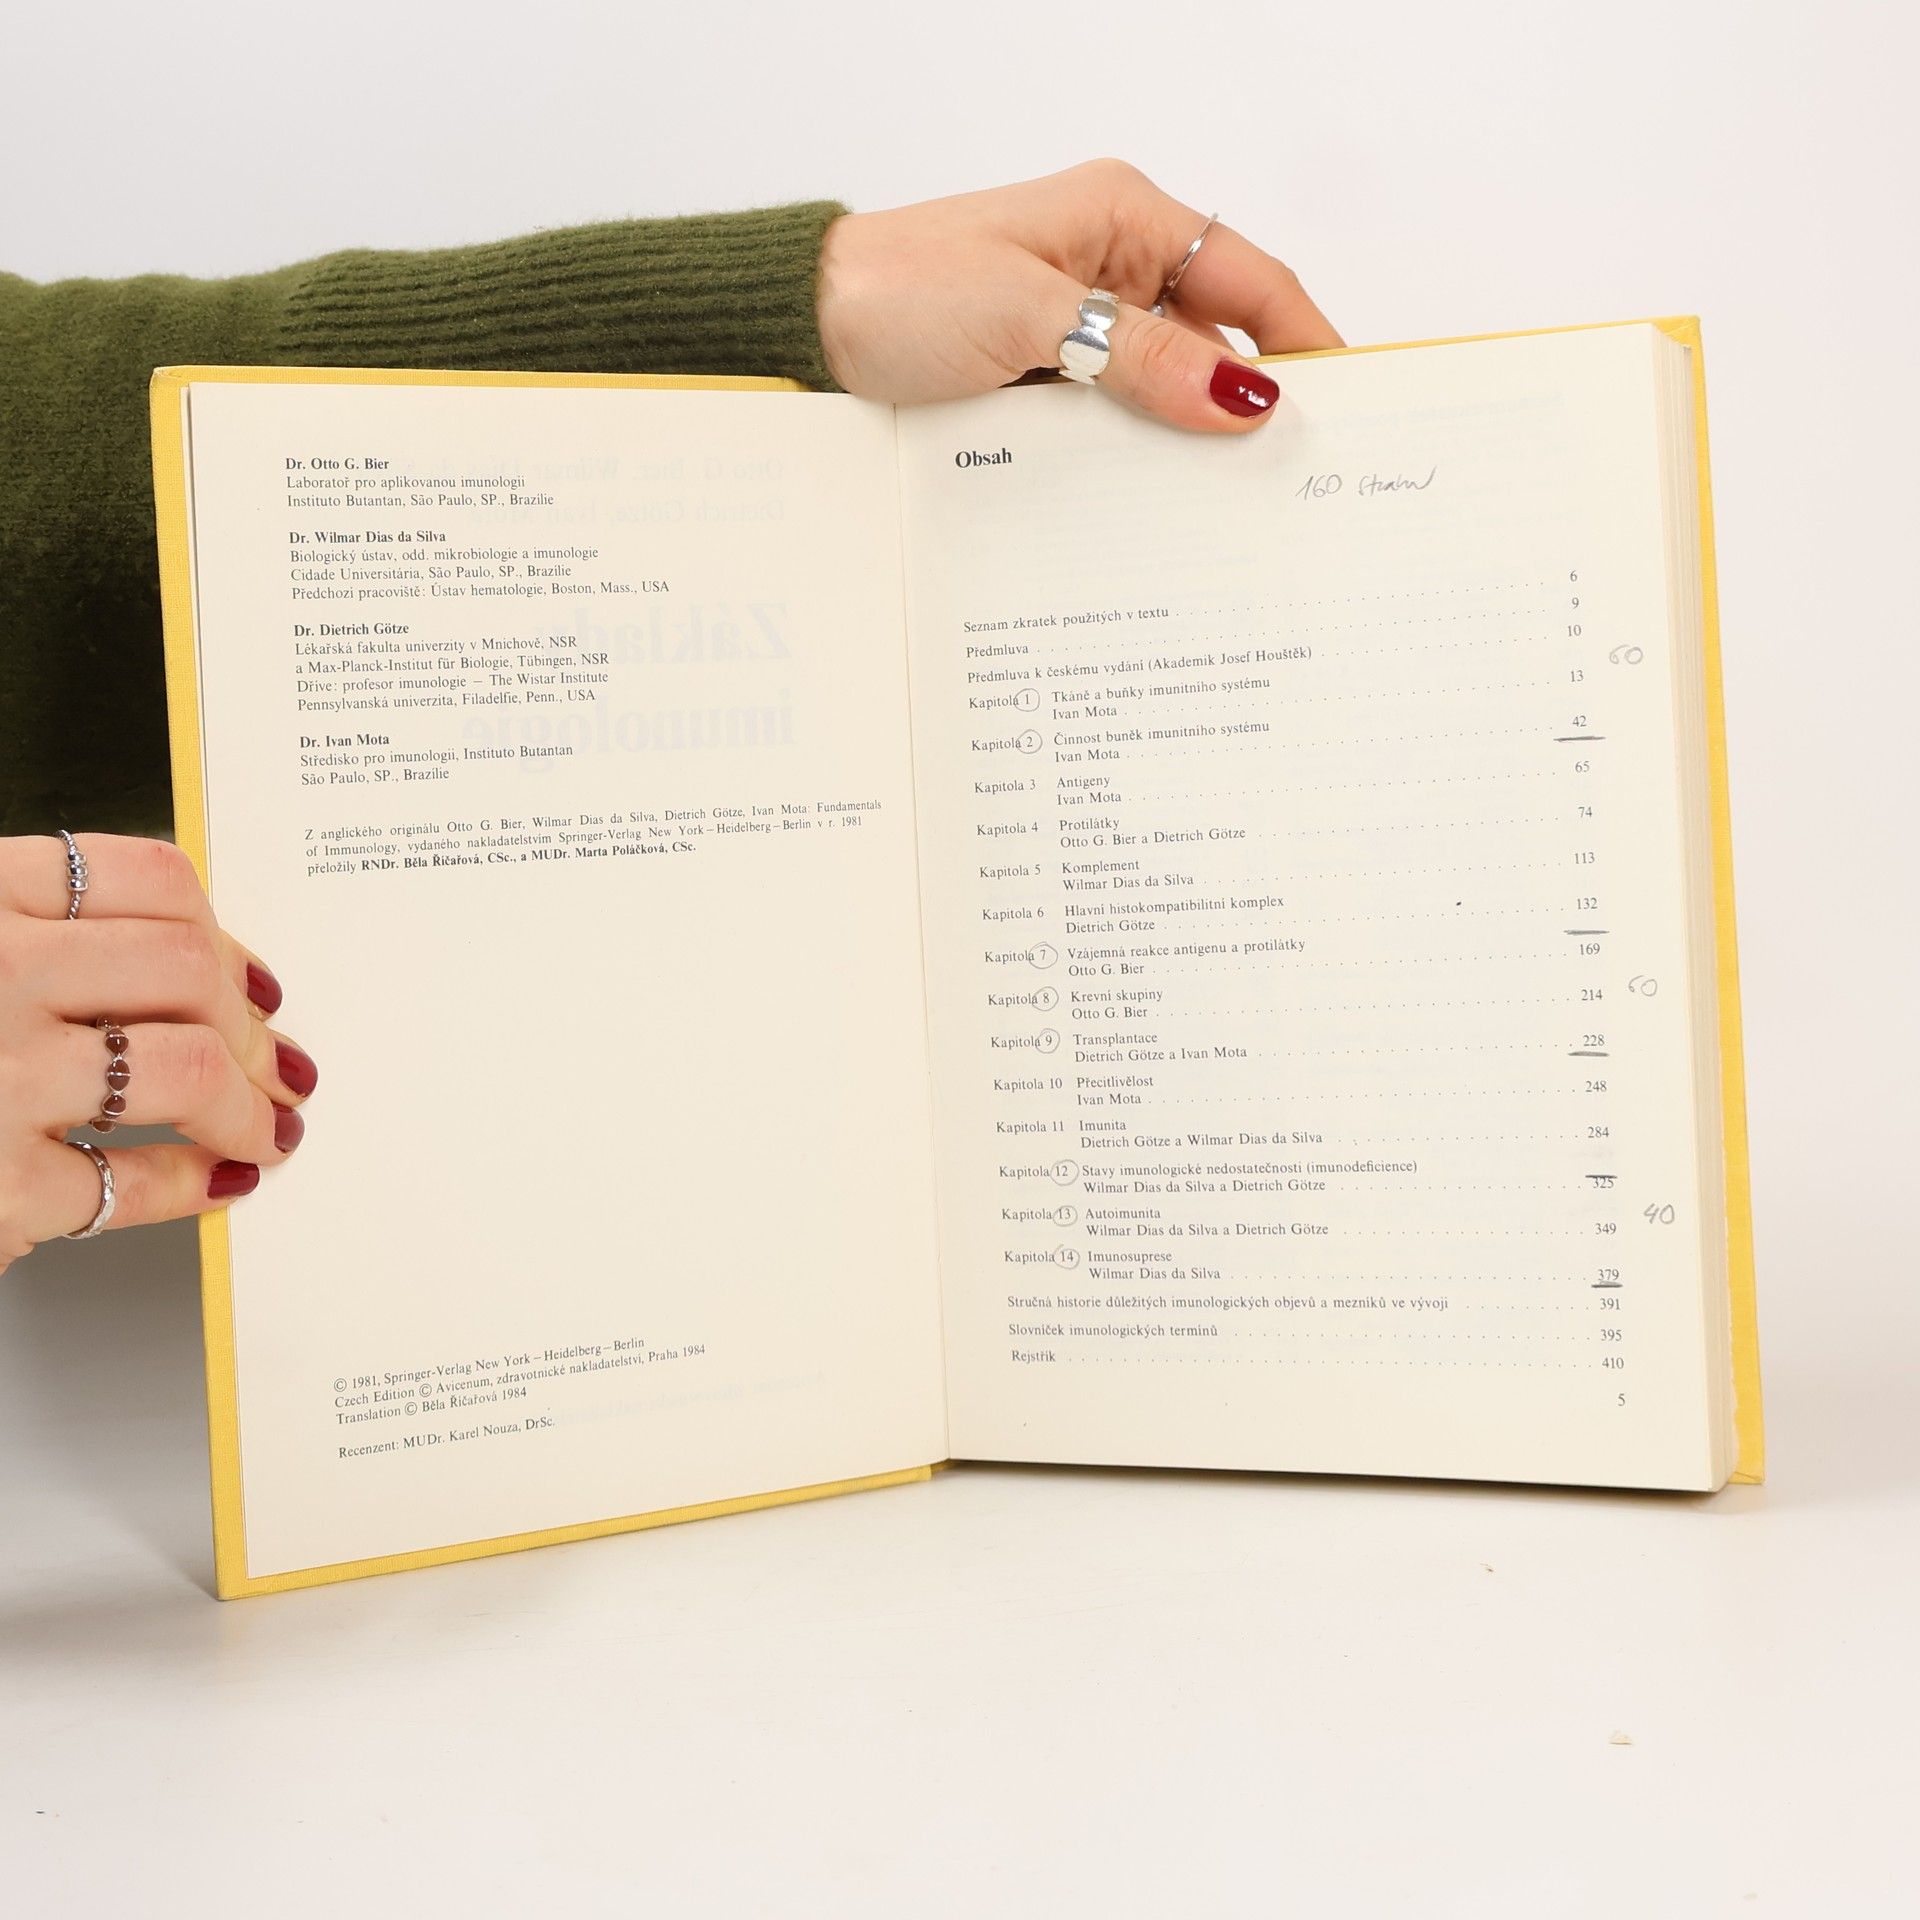 Dr. Otto G. Bier
Laboratoř pro aplikovanou imunologii
Instituto Butantan, São Paulo, SP., Brazílie
Dr. Wilmar Dias da Silva
Biologický ústav, odd. mikrobiologie a imunologie
Cidade Universitária, São Paulo, SP., Brazílie
Předchozí pracoviště: Ústav hematologie, Boston, Mass., USA
Dr. Dietrich Götze
Lékařská fakulta univerzity v Mnichově, NSR
a Max-Planck-Institut für Biologie, Tübingen, NSR
Dříve: profesor imunologie – The Wistar Institute
Pennsylvanská univerzita, Filadelfie, Penn., USA
Dr. Ivan Mota
Středisko pro imunologii, Instituto Butantan
São Paulo, SP., Brazílie
Z anglického originálu Otto G. Bier, Wilmar Dias da Silva, Dietrich Götze, Ivan Mota: Fundamentals
of Immunology, vydaného nakladatelstvím Springer-Verlag New York – Heidelberg – Berlin v r. 1981
přeložily RNDr. Běla Říčařová, CSc., a MUDr. Marta Poláčková, CSc.
© 1981, Springer-Verlag New York – Heidelberg – Berlin
Czech Edition © Avicenum, zdravotnické nakladatelství, Praha 1984
Translation © Běla Říčařová 1984
Recenzent: MUDr. Karel Nouza, DrSc.
Obsah
160 stran
Seznam zkratek použitých v textu . . . 6
Předmluva . . . 9
Předmluva k českému vydání (Akademik Josef Houštěk) . . . 10
60
Kapitola 1 Tkáně a buňky imunitního systému
Ivan Mota . . . 13
Kapitola 2 Činnost buněk imunitního systému
Ivan Mota . . . 42
Kapitola 3 Antigeny
Ivan Mota . . . 65
Kapitola 4 Protilátky
Otto G. Bier a Dietrich Götze . . . 74
Kapitola 5 Komplement
Wilmar Dias da Silva . . . 113
Kapitola 6 Hlavní histokompatibilitní komplex
Dietrich Götze . . . 132
Kapitola 7 Vzájemná reakce antigenu a protilátky
Otto G. Bier . . . 169
Kapitola 8 Krevní skupiny
Otto G. Bier . . . 214
60
Kapitola 9 Transplantace
Dietrich Götze a Ivan Mota . . . 228
Kapitola 10 Přecitlivělost
Ivan Mota . . . 248
Kapitola 11 Imunita
Dietrich Götze a Wilmar Dias da Silva . . . 284
Kapitola 12 Stavy imunologické nedostatečnosti (imunodeficience)
Wilmar Dias da Silva a Dietrich Götze . . . 325
Kapitola 13 Autoimunita
Wilmar Dias da Silva a Dietrich Götze . . . 349
40
Kapitola 14 Imunosuprese
Wilmar Dias da Silva . . . 379
Stručná historie důležitých imunologických objevů a mezníků ve vývoji . . . 391
Slovníček imunologických termínů . . . 395
Rejstřík . . . 410
5